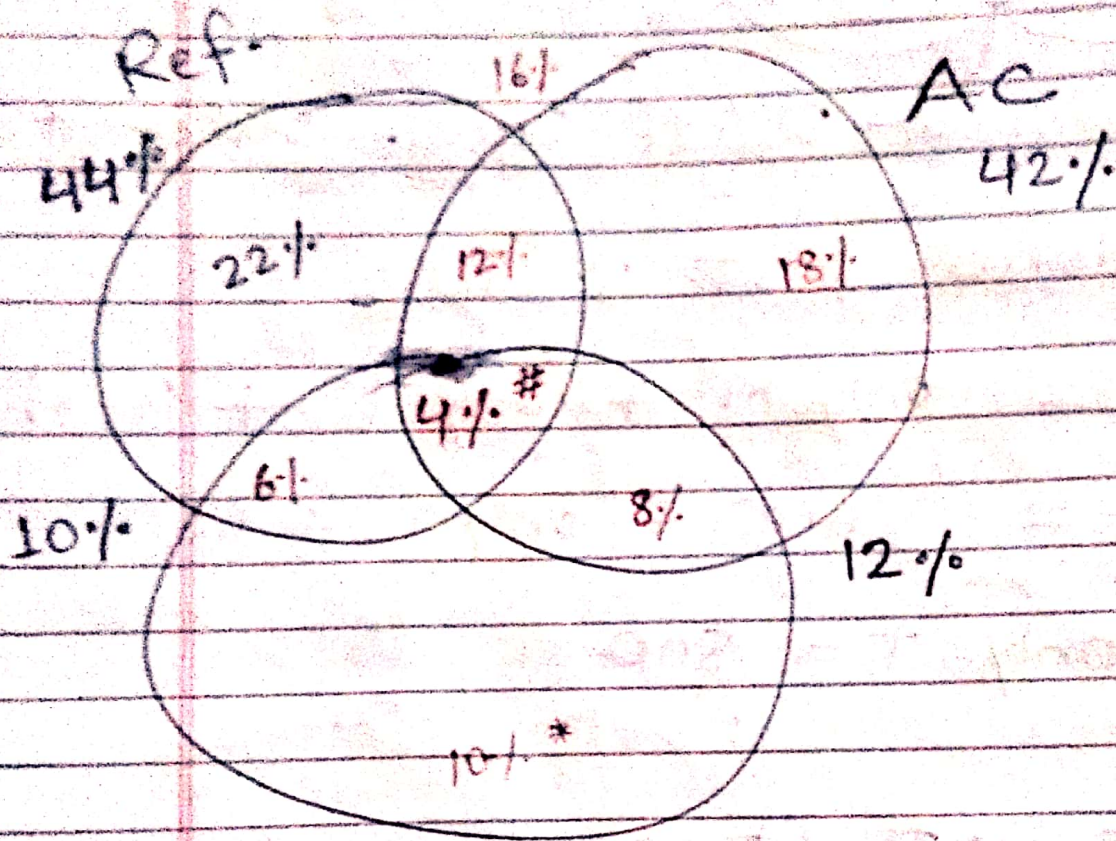 Ref.
16%
AC
44%
42%
22%
12%
18%
4% #
6%
8%
10%
12%
10% *